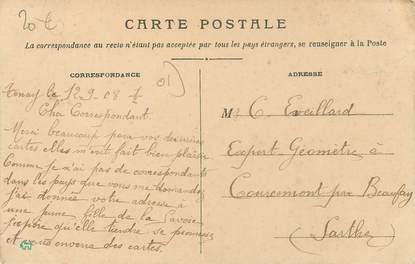 20 €
CARTE POSTALE
La correspondance au recto n'étant pas acceptée par tous les pays étrangers, se renseigner à la Poste
CORRESPONDANCE
le 12-9-08
01
Cher Correspondant.
Merci beaucoup pour vos dernières
cartes elles m'ont fait bien plaisir
Comme je n'ai pas de correspondants
dans les pays que vous me demandez
j'ai donnée votre adresse à
une jeune fille de la Savoie
j'espère qu'elle tiendra sa promesse
et vous enverra des cartes.
ADRESSE
M. C. Eveillard
Expert Géomètre à
Courcemont par Beaufay
(Sarthe)